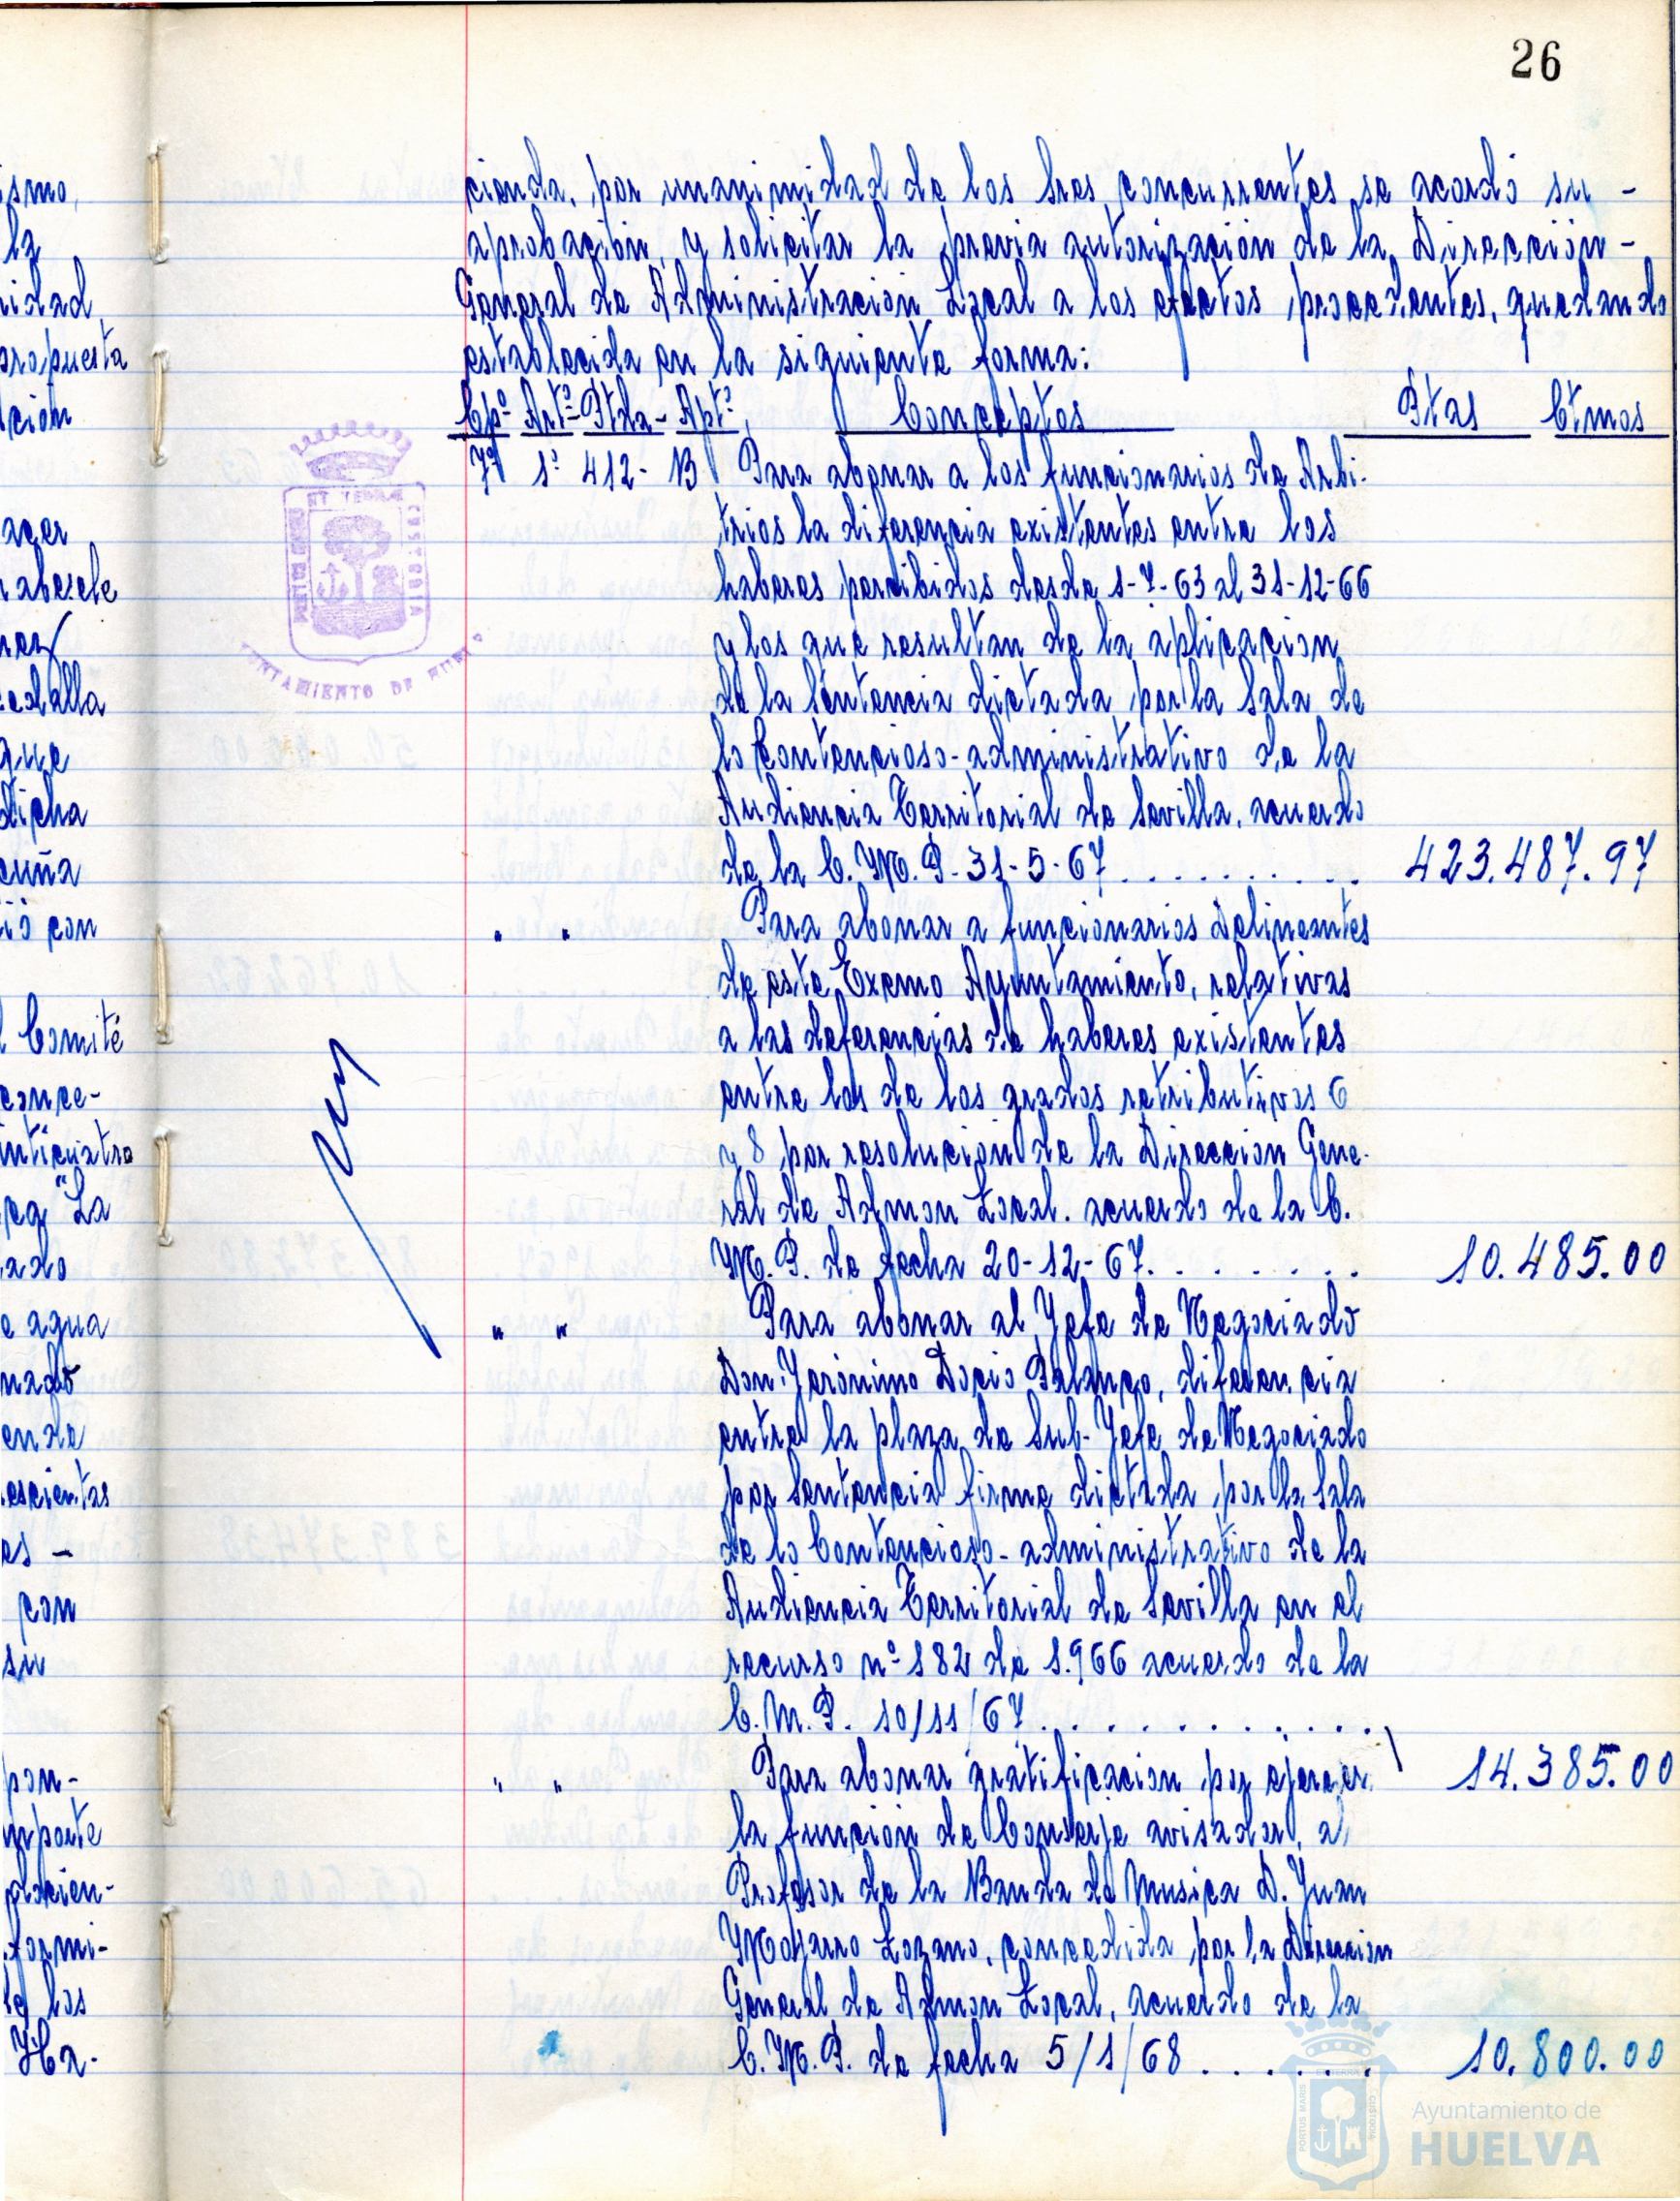 26
cienda, por unanimidad de los Sres concurrentes se acordó su -
aprobación, y solicitar la previa autorización de la Dirección -
General de Administración Local a los efectos procedentes, quedando
establecida en la siguiente forma:
Cpº Artº Ptda - Aptº Conceptos Ptas Ctmos
7º 1º 412 - B Para abonar a los funcionarios de Arbi-
trios la diferencia existentes entre los
haberes percibidos desde 1-7-63 al 31-12-66
y los que resultan de la aplicacion
de la Sentencia dictada por la Sala de
lo Contencioso-administrativo de la
Audiencia Territorial de Sevilla, acuerdo
de la C. M. P. 31-5-67 . . . . . . . . . . 423.487.97
" " Para abonar a funcionarios Delineantes
de este Excmo Ayuntamiento, relativas
a las deferencias de haberes existentes
entre los de los grados retributivos 6
y 8 por resolucion de la Direccion Gene-
ral de Admon Local. acuerdo de la C.
M. P. de fecha 20-12-67. . . . . . . . 10.485.00
" " Para abonar al Jefe de Negociado
Don. Jerónimo Docio Palanco, diferencia
entre la plaza de Sub-Jefe de Negociado
por Sentencia firme dictada por la Sala
de lo Contencioso-administrativo de la
Audiencia Territorial de Sevilla en el
recurso nº 182 de 1.966 acuerdo de la
C. M. P. 10/11/67 . . . . . . . . . . . .
" " Para abonar gratificacion por ejercer 14.385.00
la función de Conserje avisador, a
Profesor de la Banda de Musica D. Juan
Mojarro Lozano, concedida por la Direccion
General de Admon Local, acuerdo de la
C. M. P. de fecha 5/1/68 . . . . . . . 10.800.00
ismo,
la
idad,
propuesta
ción
acer
rabesele
rez
edalla
que
dicha
cuña
ió con
Comité
conce-
inticuatro
ca "La
ado
e agua
nado
ende
escientas
es -
con
su
pon-
mporte
formi-
los
Ha-
AYUNTAMIENTO DE HUELVA
Ayuntamiento de
HUELVA